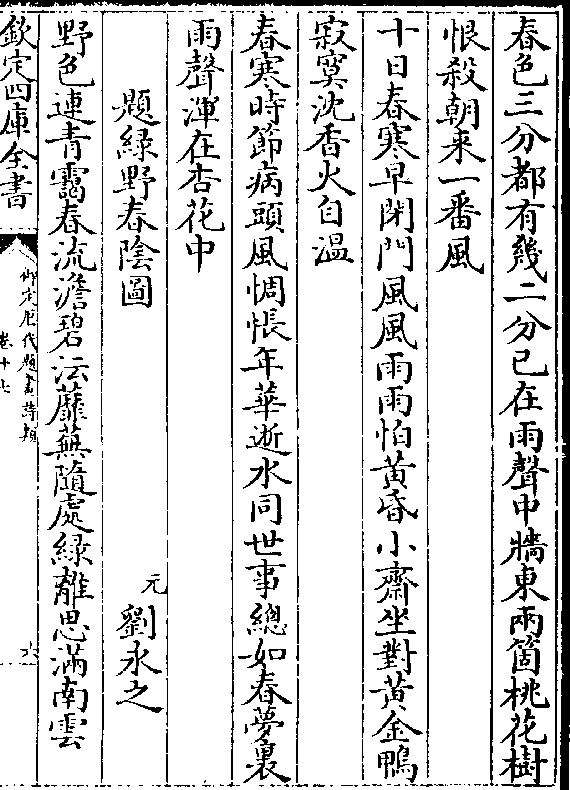 春色三分都有幾二分已在雨聲中牆東兩箇桃花樹
恨殺朝来一番風
十日春寒早閉門風風雨雨怕黄昏小齋坐對黄金鴨
寂寞沈香火自温
春寒時節病頭風惆悵年華逝水同世事總如春夢裏
雨聲渾在杏花中
題緑野春陰圖
元劉永之
野色連青靄春流澹碧沄蘼蕪隨處緑離思滿南雲
欽定四庫全書
御定歴代題畫詩類
卷十七
六